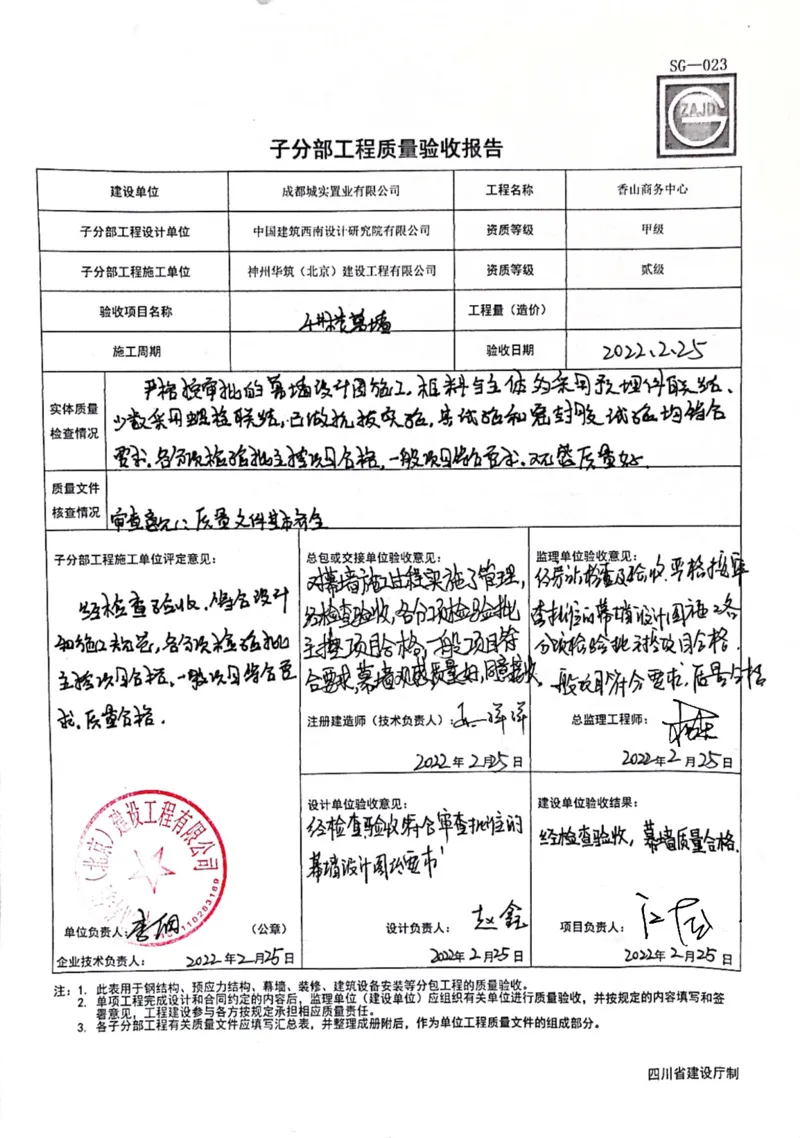 SG—023
ZAJD
子分部工程质量验收报告
建设单位 成都城实置业有限公司 工程名称 香山商务中心
子分部工程设计单位 中国建筑西南设计研究院有限公司 资质等级 甲级
子分部工程施工单位 神州华筑（北京）建设工程有限公司 资质等级 贰级
验收项目名称 幕墙 工程量（造价）
施工周期 验收日期 2022.2.25
实体质量
检查情况
严格按审批的幕墙设计图施工,框料与主体为采用予埋件联结、
少数采用螺栓联结,已做抗拔试验,其试验和密封胶试验均符合
要求,各分项检验批主控项目合格,一般项目符合要求,观感质量好.
质量文件
核查情况
审查意见：质量文件基本齐全
子分部工程施工单位评定意见：
经检查验收,符合设计
和施工规范,各分项检验批
主控项目合格,一般项目符合要
求,质量合格.
（北京）建设工程有限公司
单位负责人： 李 （公章）
企业技术负责人： 2022年2月25日
总包或交接单位验收意见：
对幕墙施工过程实施了管理,
经检查验收,各分项检验批
主控项目合格,一般项目符
合要求,幕墙观感质量好,同意接收.
注册建造师（技术负责人）： 洋洋
2022年2月25日
监理单位验收意见：
经旁站检查及验收,严格按审
查批准的幕墙设计图施工各
分项检验批主控项目合格.
一般项目符合要求.质量合格
总监理工程师：
2022年2月25日
设计单位验收意见：
经检查验收符合审查批准的
幕墙设计图纸要求
设计负责人： 赵鑫
2022年2月25日
建设单位验收结果：
经检查验收，幕墙质量合格.
项目负责人： 江
2022年2月25日
注：1. 此表用于钢结构、预应力结构、幕墙、装修、建筑设备安装等分包工程的质量验收。
2. 单项工程完成设计和合同约定的内容后，监理单位（建设单位）应组织有关单位进行质量验收，并按规定的内容填写和签
署意见，工程建设参与各方按规定承担相应质量责任。
3. 各子分部工程有关质量文件应填写汇总表，并整理成册附后，作为单位工程质量文件的组成部分。
四川省建设厅制